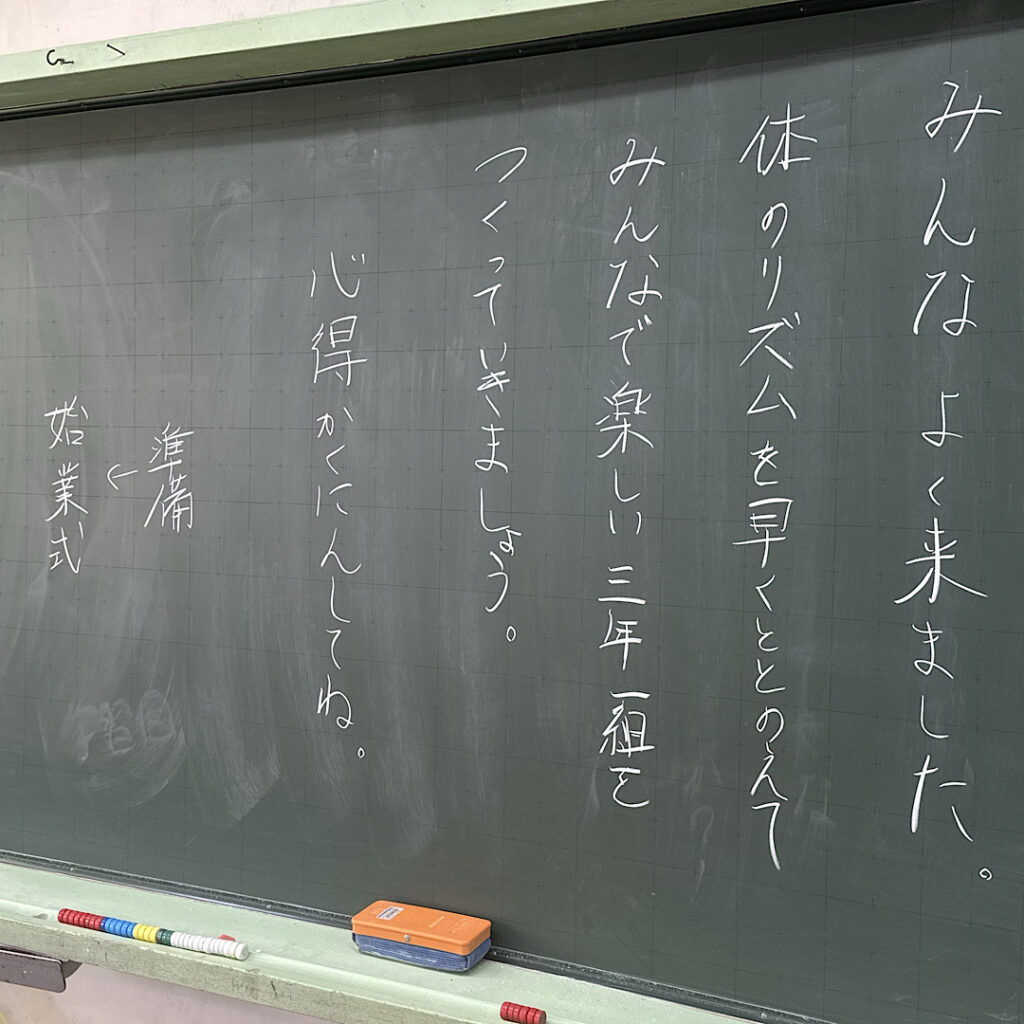 みんなよく来ました。
体のリズムを早くととのえて
みんなで楽しい三年一組を
つくっていきましょう。
心得かくにんしてね。
準備
↓
始業式